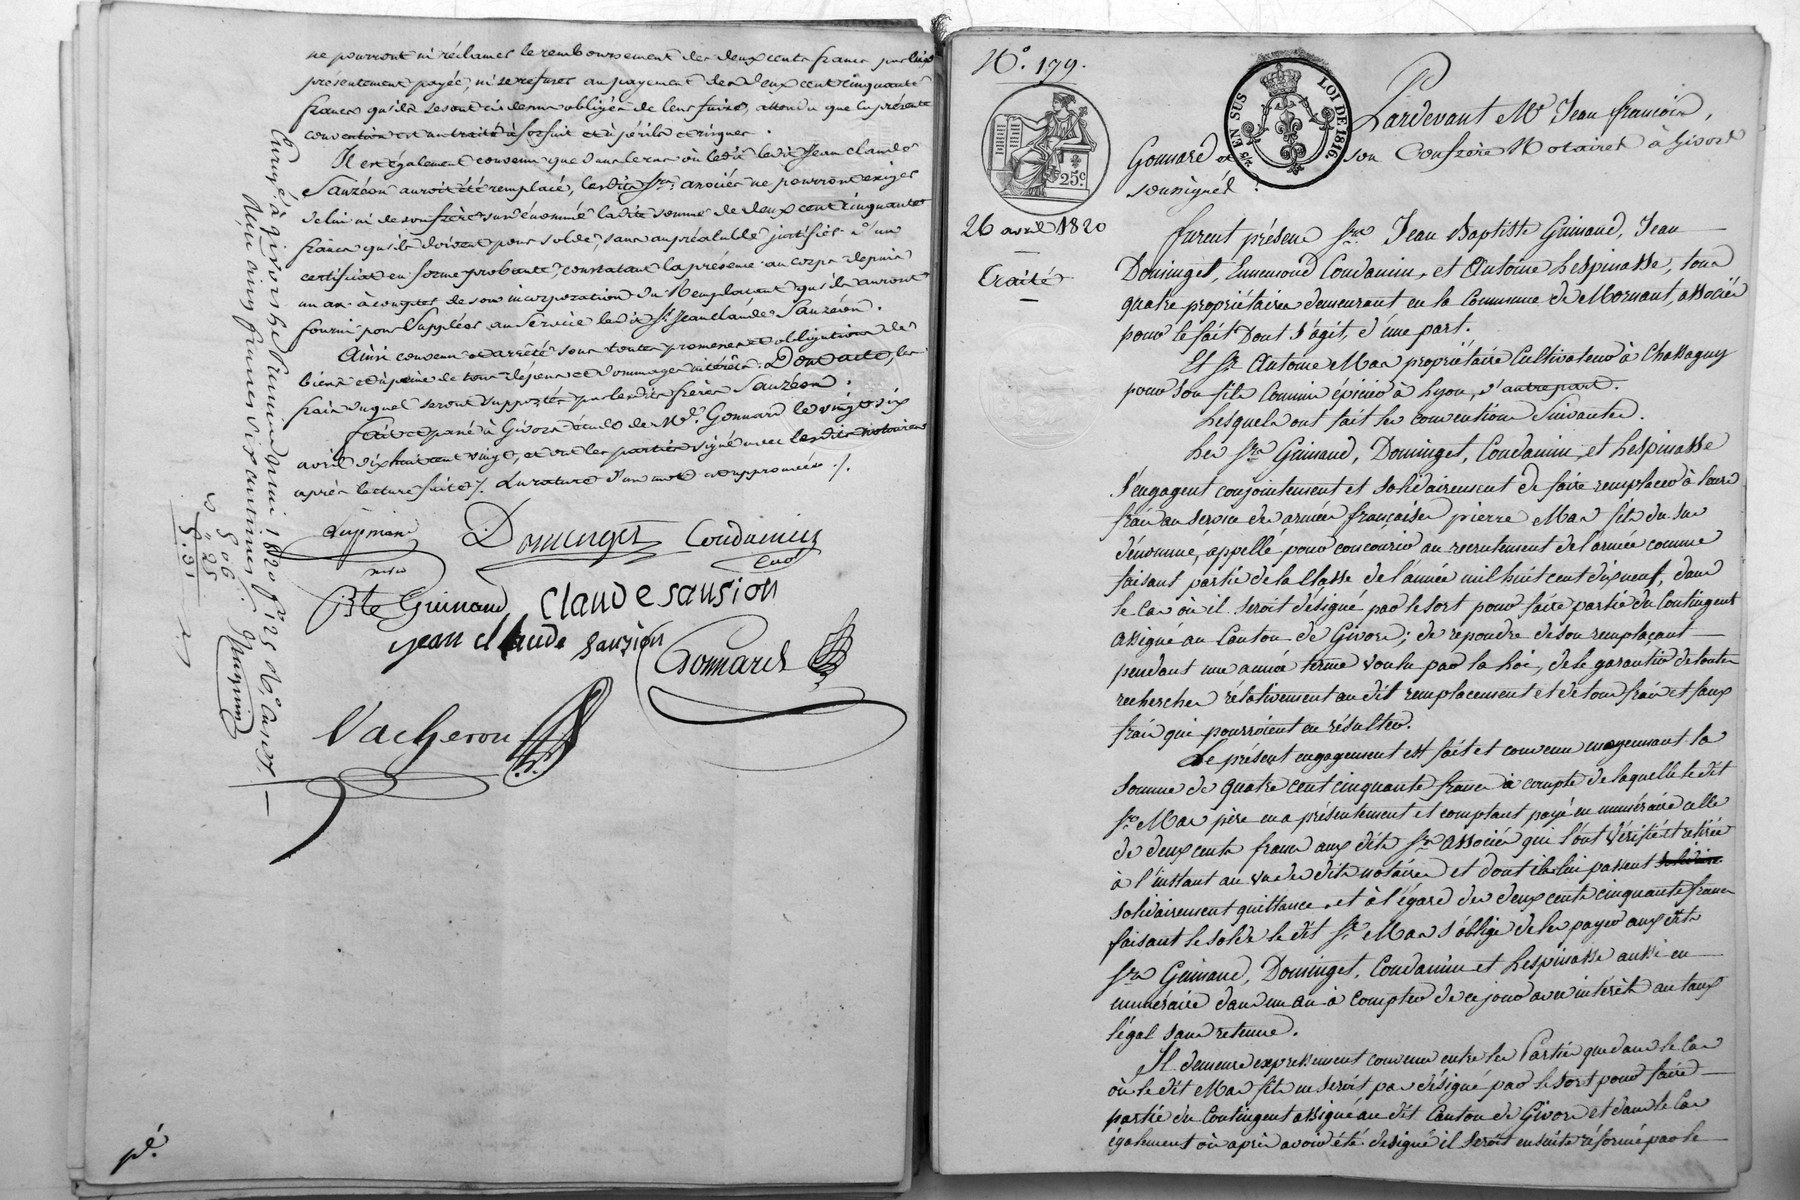 ne pourront ni réclamer le remboursement des deux cents francs par lui
présentement payée, ni se refuser au payement des deux cent cinquante
francs qu'ils se sont ci dessus obligés de leur faire, attendu que la présente
convention est un traité à forfait et à périls et risques.
Il est également convenu que dans le cas où le dit Jean Claude
Sauzéon auroit été remplacé, les dits Srs associés ne pourront exiger
de lui ni de son frère sus dénommé la dite somme de deux cent cinquante
francs qu'ils doivent pour solde, sans au préalable justifier d'un
certificat en forme probante, constatant la présence au corps depuis
un an à compter de son incorporation du Remplaçant qu'ils auront
fourni pour suppléer au service le dit Sr Jean Claude Sauzéon.
Ainsi convenu et arrêté sous toutes promesses et obligations de
biens et à peine de tous dépens et dommages intérêts. Dont acte, les
frais duquel seront supportés par les dits frères Sauzéon.
Fait et passé à Givors étude de Me. Gonnard le vingt six
avril dix huit cent vingt, et ont les parties signé avec les dits notaires
après lecture faite /. La rature d'un mot est approuvée /.
Domenget Coudamin
Bte Guinand Claude sausion
jean claude sauzion
Gonnard
Vacheron
5 06
25
5.31
pd.
N°. 179.
EN SUS
LOI DE 1816.
25c
26 avril 1820
Traité
Pardevant Me Jean françois
Gonnard et son Confrère Notaires à Givors
soussignés.
furent présens Srs Jean Baptiste Guinand, Jean
Dominget, Ennemond Coudamin, et Antoine Lespinasse, tous
quatre propriétaires demeurant en la Commune de Mornant, associés
pour le fait Dont s'agit, d'une part.
Et Sr Antoine Mas propriétaire Cultivateur à Chassagny
pour son fils Commis épicier à Lyon, d'autre part.
Lesquels ont fait les conventions Suivantes.
Les Srs Guinand, Dominget, Coudamin, et Lespinasse
s'engagent conjointement et solidairement de faire remplacer à leurs
frais au service des armées françaises pierre Mas fils du sus
dénommé, appellé pour concourir au recrutement de l'armée comme
faisant partie de la Classe de l'année mil huit cent dix neuf, dans
le cas où il seroit désigné par le sort pour faire partie du Contingent
assigné au Canton de Givors; de répondre de son remplaçant
pendant une année terme voulu par la Loi, de le garantir de toutes
recherches rélativement au dit remplacement et de tous frais et faux
frais qui pourroient en résulter.
Le présent engagement est fait et convenu moyennant la
somme de quatre cent cinquante francs à compte de laquelle le dit
Sr Mas père en a présentement et comptant payé en numéraire celle
de deux cents francs aux dits Srs associés qui l'ont vérifiée et retirée
à l'instant au vu des dits notaires et dont ils lui passent
solidairement quittance, et à l'égard des deux cents cinquante francs
faisant le solde le dit Sr Mas s'oblige de les payer aux dits
Srs Guinand, Dominget, Coudamin et Lespinasse aussi en
numéraire dans un an à compter de ce jour avec intérêts au taux
légal sans retenue.
Il demeure expressément convenu entre les Parties que dans le cas
où le dit Mas fils ne seroit pas désigné par le sort pour faire
partie du Contingent assigné au dit Canton de Givors et dans le cas
également où après avoir été désigné il seroit ensuite réformé par le